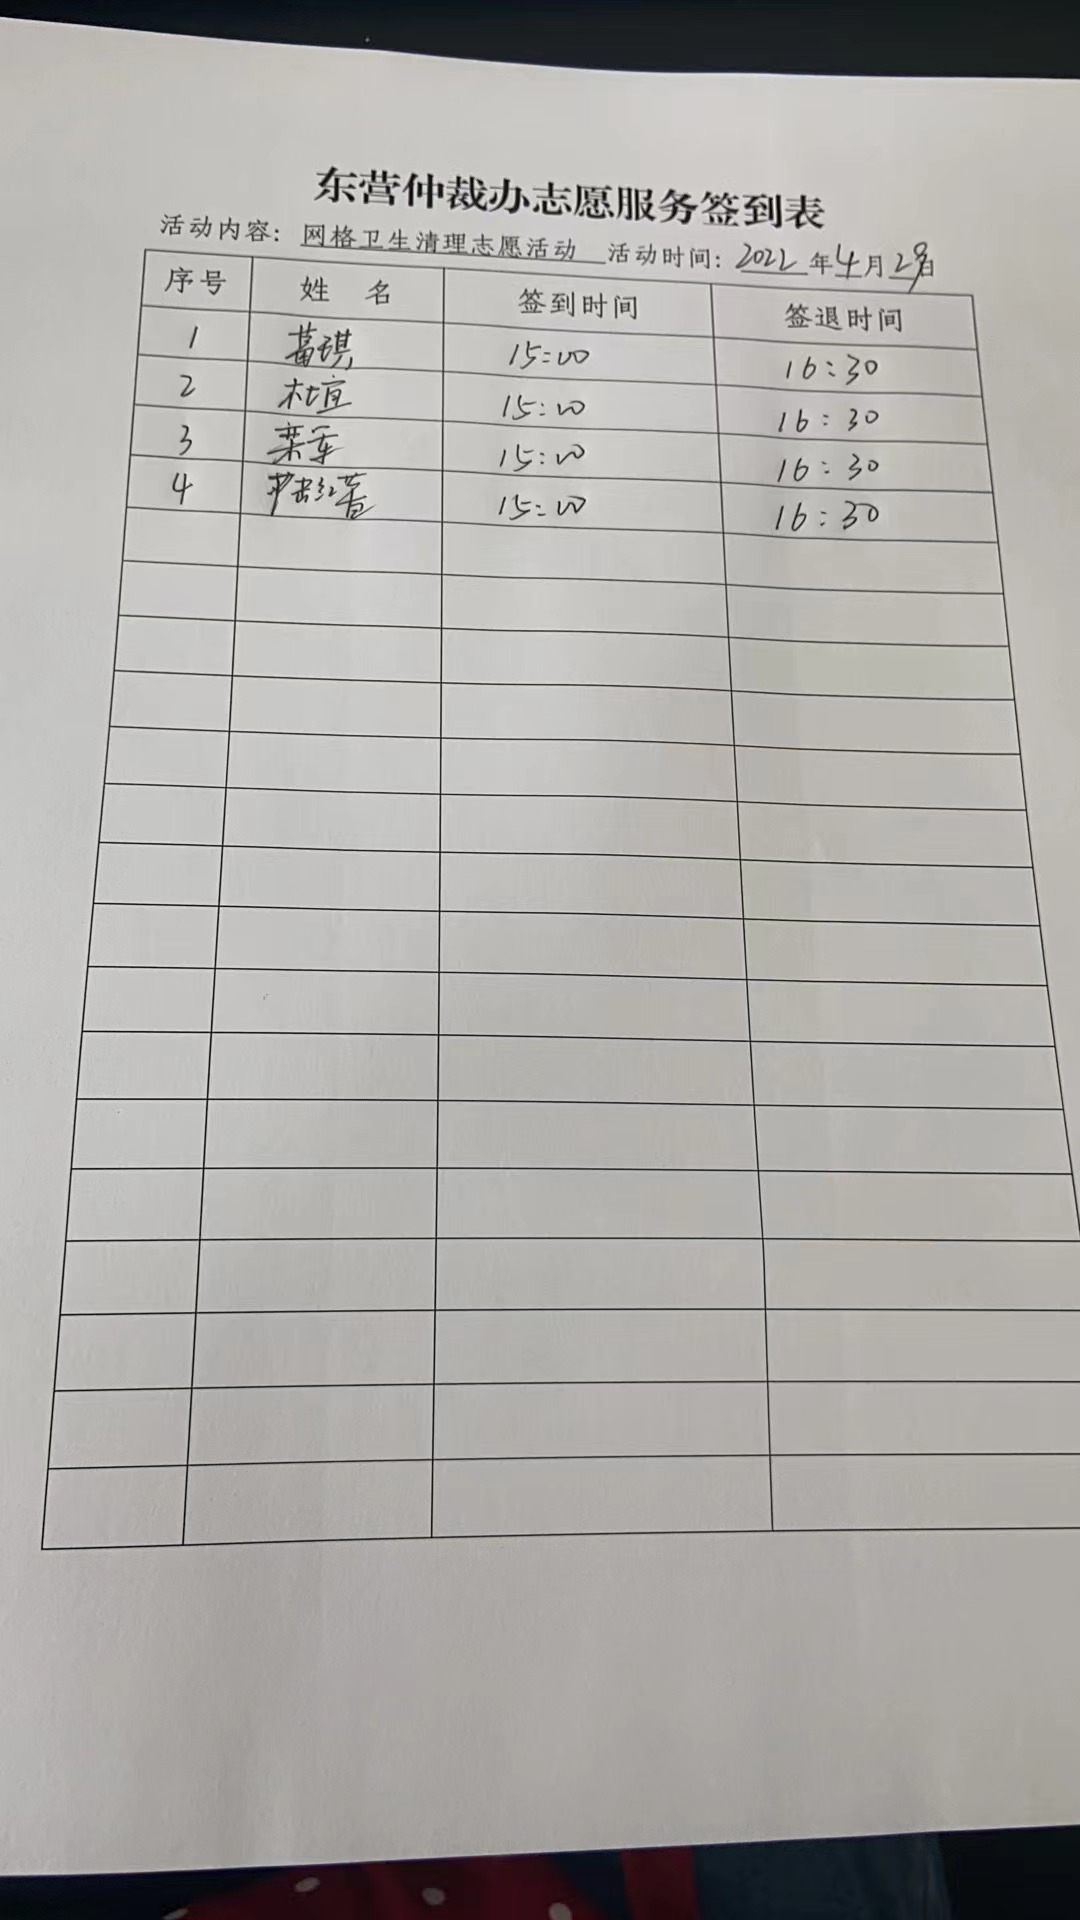 东营仲裁办志愿服务签到表
活动内容：网格卫生清理志愿活动 活动时间：2022年4月29日
序号 姓 名 签到时间 签退时间
1 葛琪 15:00 16:30
2 杜宜 15:00 16:30
3 栾军 15:00 16:30
4 15:00 16:30